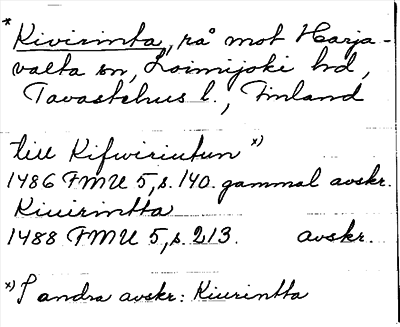 * Kivirinta, rå mot Harja-
valta sn, Loimijoki hd,
Tavastehus l., Finland
till Kifwirintun x)
1486 FMU 5, s. 140. gammal avskr.
Kiuirintta
1488 FMU 5, s. 213. avskr.
x) I andra avskr: Kiurintta